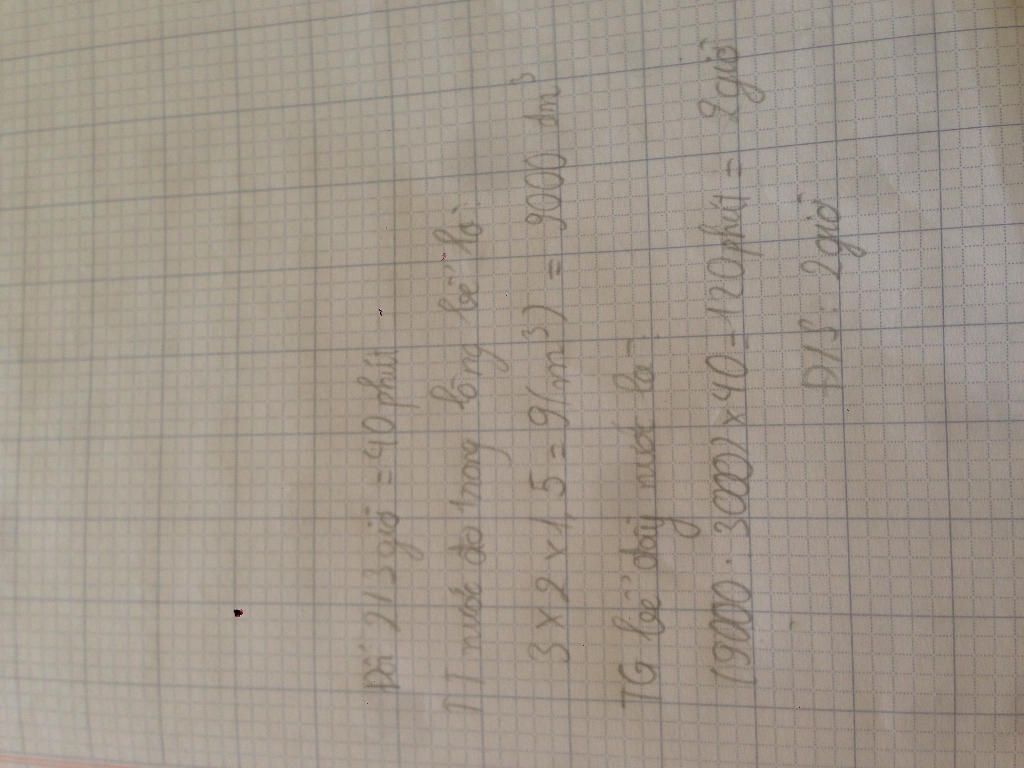 Đổi 2/3 giờ = 40 phút
TT nước đo trong lòng bể là
3 x 2 x 1,5 = 9 (m3) = 9000 dm3
TG bể đầy nước là
(9000 : 3000) x 40 = 120 phút = 2 giờ
Đ/S: 2 giờ